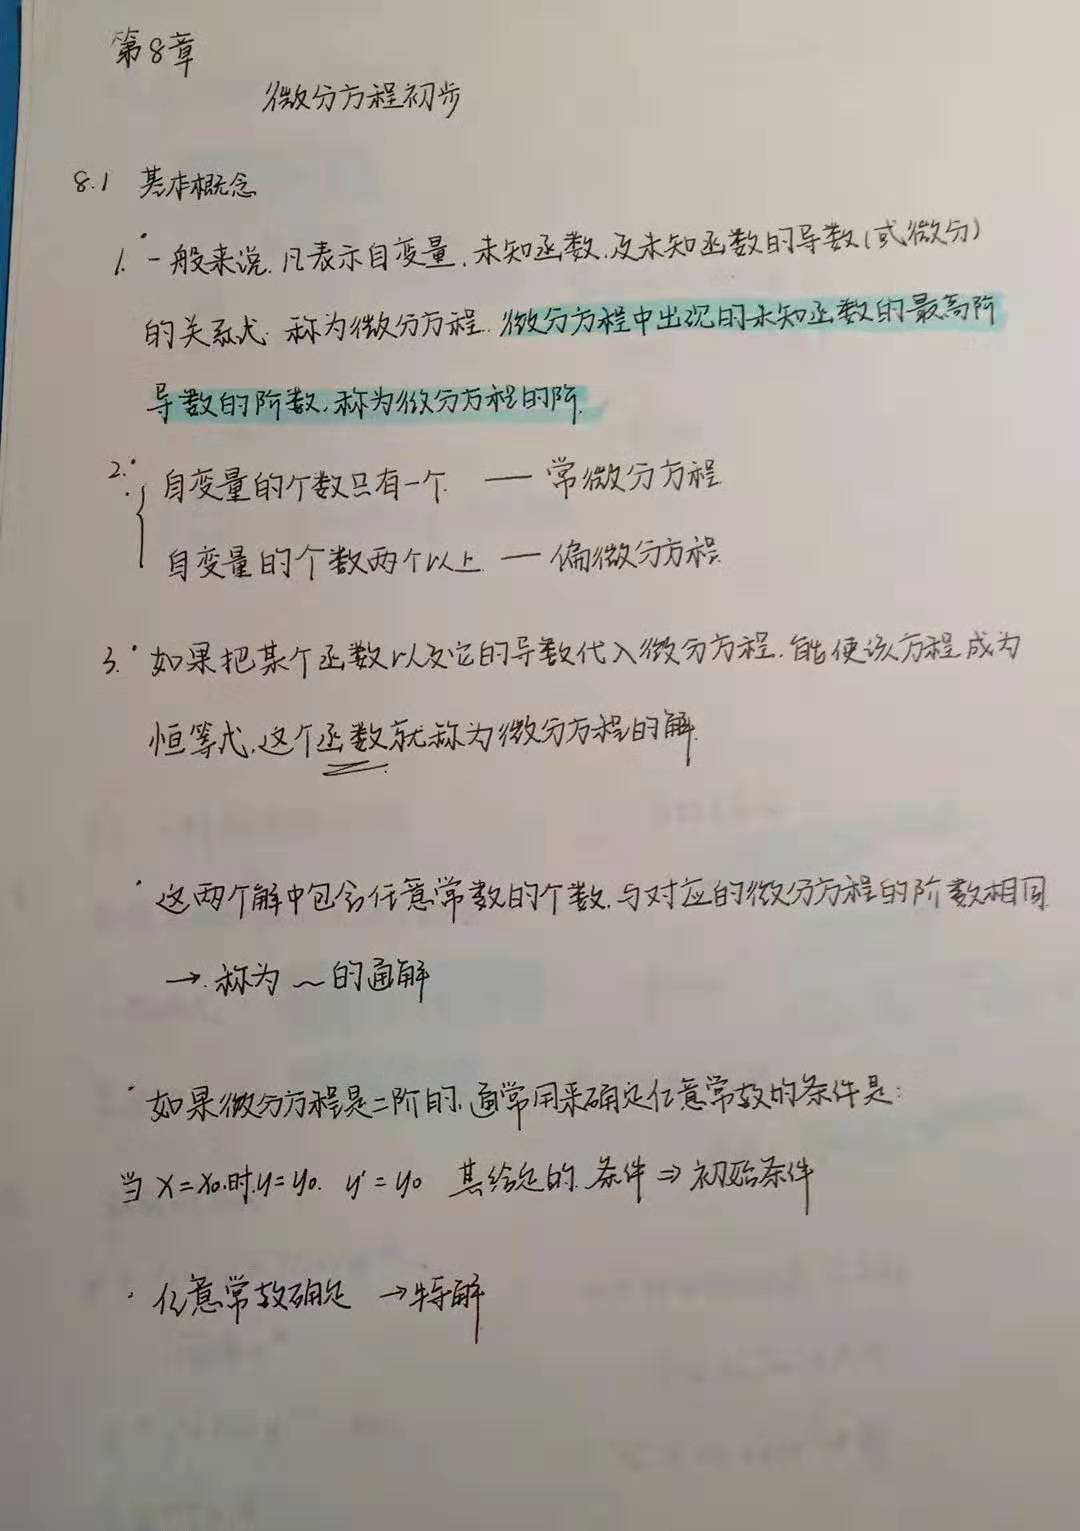 第8章
微分方程初步
8.1 基本概念
1. 一般来说,凡表示自变量,未知函数,及未知函数的导数(或微分)
的关系式,称为微分方程.微分方程中出现的未知函数的最高阶
导数的阶数,称为微分方程的阶.
2. 自变量的个数只有一个 — 常微分方程
自变量的个数两个以上 — 偏微分方程
3. 如果把某个函数以及它的导数代入微分方程,能使该方程成为
恒等式,这个函数就称为微分方程的解.
· 这两个解中包含任意常数的个数,与对应的微分方程的阶数相同
→ 称为 ~ 的通解
· 如果微分方程是二阶的,通常用来确定任意常数的条件是:
当 x=x₀时,y=y₀. y'=y₀ 其给定的条件 ⇒ 初始条件
· 任意常数确定 → 特解